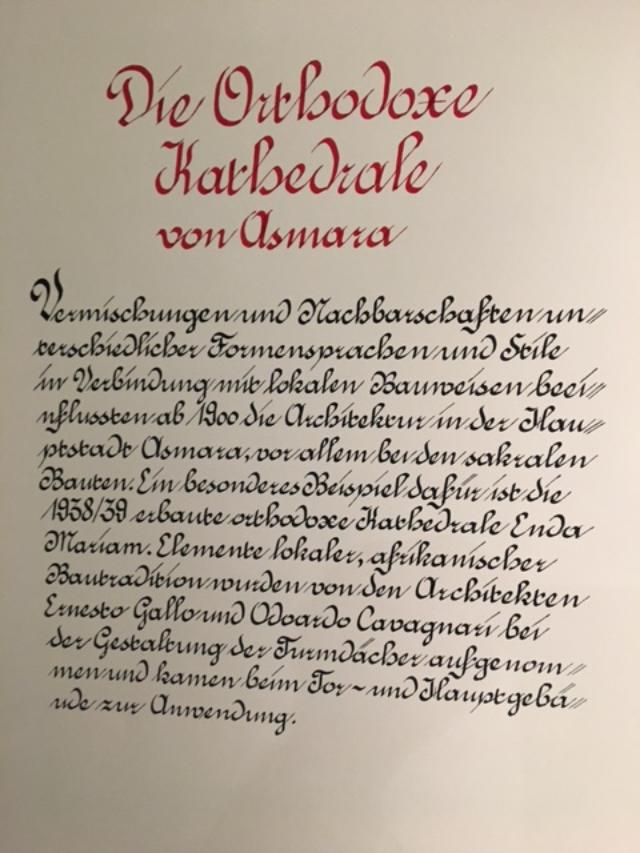 Die Orthodoxe
Kathedrale
von Asmara
Vermischungen und Nachbarschaften un//
terschiedlicher Formensprachen und Stile
in Verbindung mit lokalen Bauweisen beei//
nflussten ab 1900 die Architektur in der Hau//
ptstadt Asmara, vor allem bei den sakralen
Bauten. Ein besonderes Beispiel dafür ist die
1938/39 erbaute orthodoxe Kathedrale Enda
Mariam. Elemente lokaler, afrikanischer
Bautradition wurden von den Architekten
Ernesto Gallo und Odoardo Cavagnari bei
der Gestaltung der Turmdächer aufgenom//
men und kamen beim Tor- und Hauptgebä//
ude zur Anwendung.